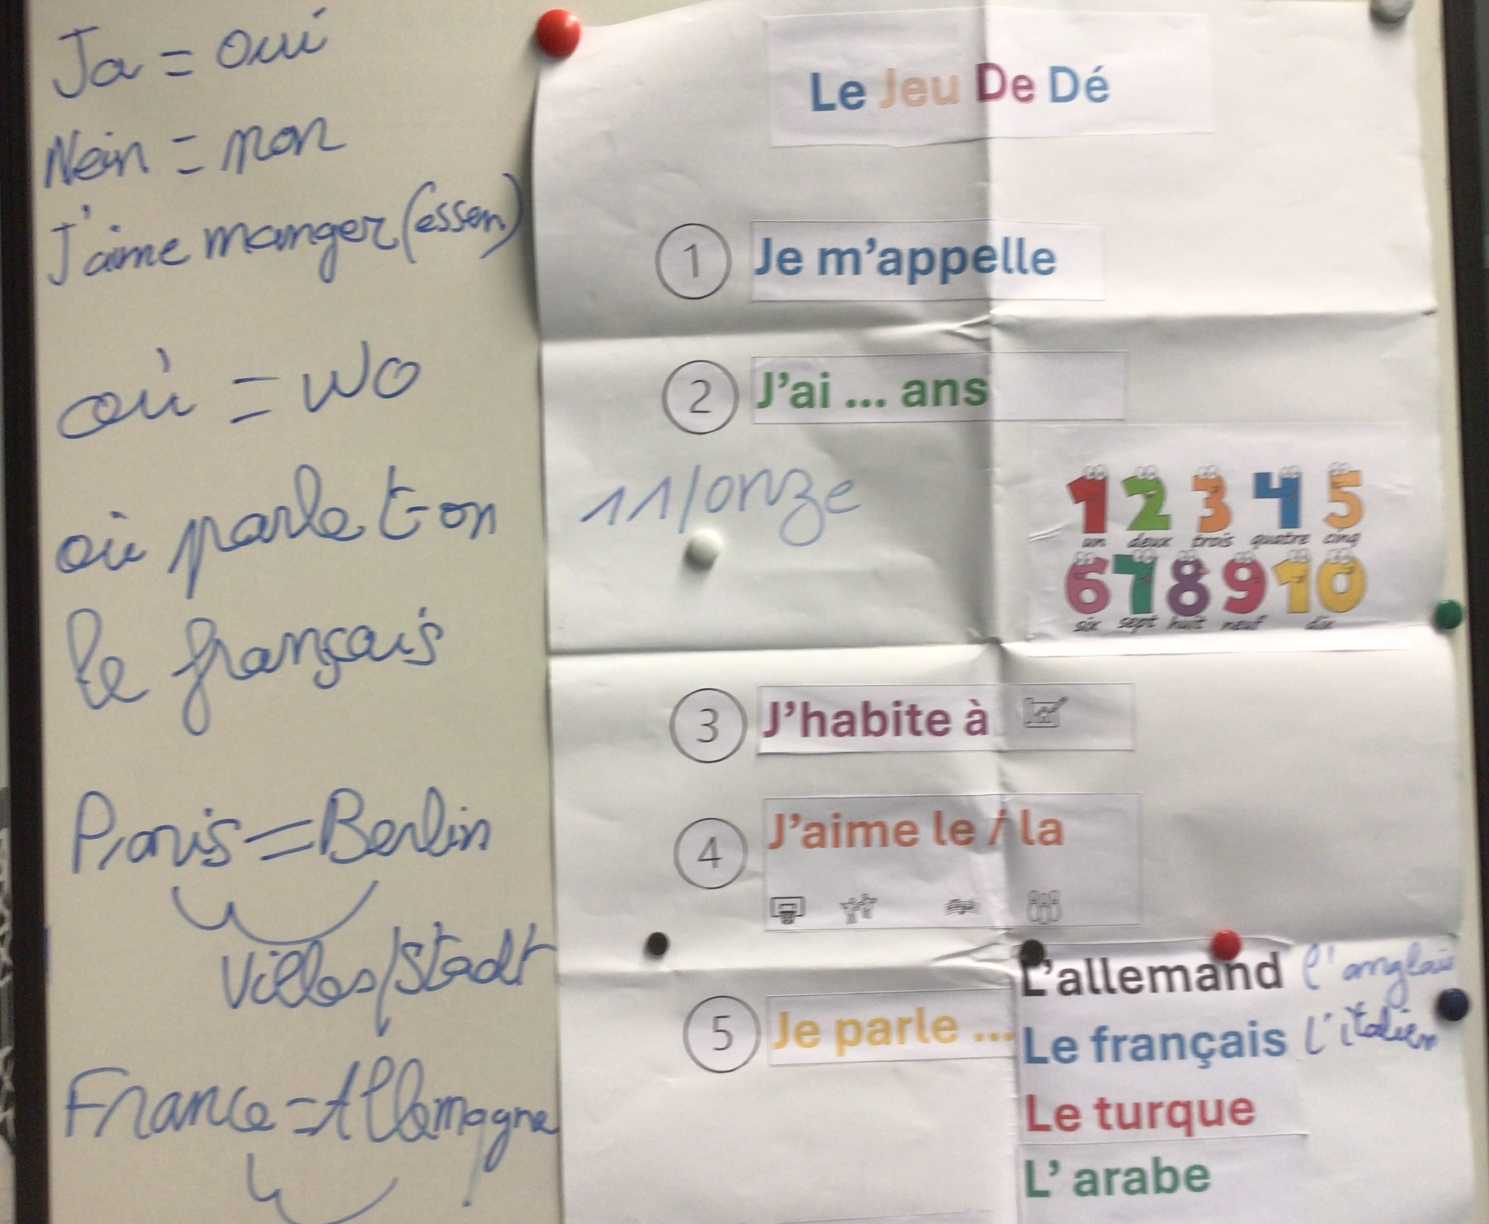 Ja = oui
Nein = non
J'aime manger (essen)
où = wo
où parle t-on
le français
Paris = Berlin
Villes/Stadt
France = Allemagne
Le Jeu De Dé
1 Je m'appelle
2 J'ai ... ans
11/onze
1 2 3 4 5
un deux trois quatre cinq
6 7 8 9 10
six sept huit neuf dix
3 J'habite à
4 J'aime le / la
5 Je parle ...
L'allemand l'anglais
Le français l'italien
Le turque
L' arabe